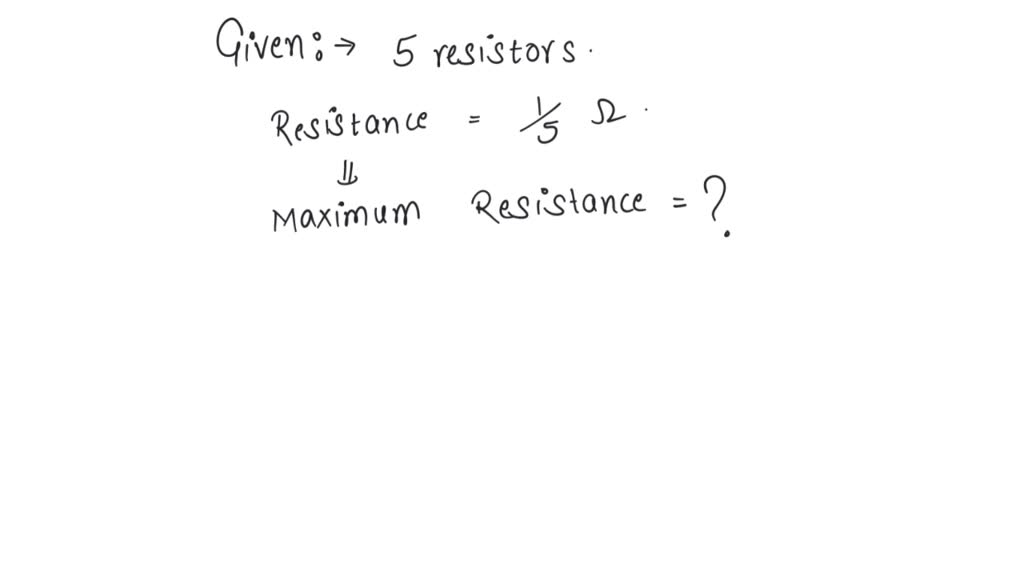 Given:→ 5 resistors.
Resistance = 1/5 Ω.
⇓
Maximum Resistance = ?